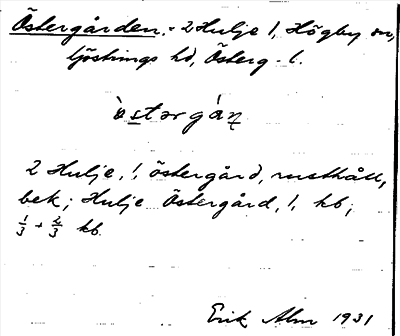 Östergården, = 2 Hulje 1, Högby sn,
Göstrings hd, Österg. l.
östərgɑ̀ṇ
2 Hulje, 1, östergård, rusthåll,
bek; Hulje Östergård, 1, kb;
1/3 + 2/3 kb
Erik Alm 1931